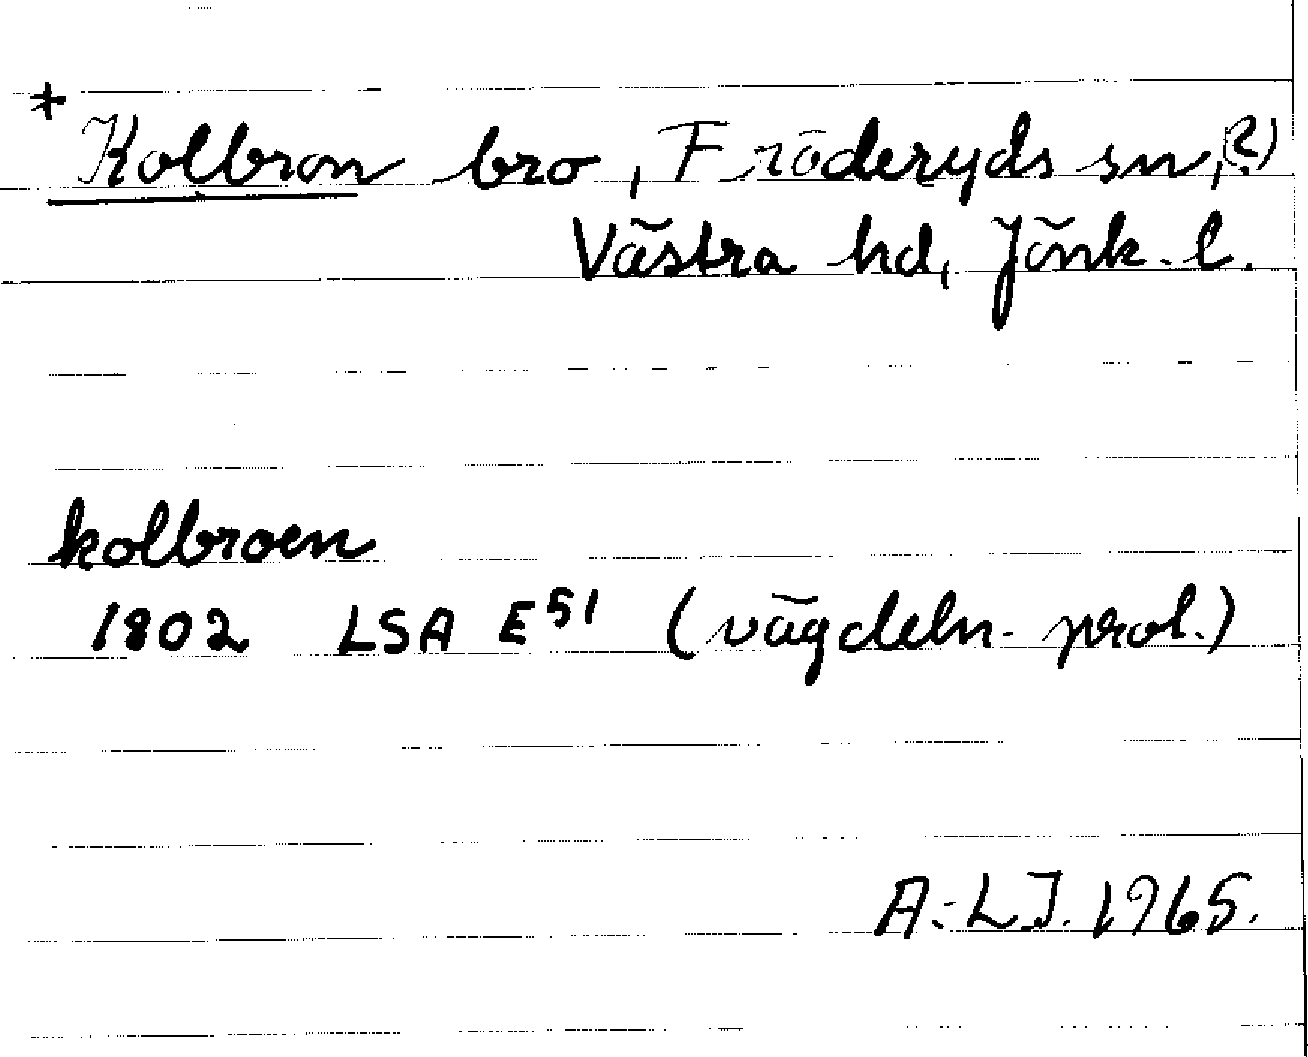 + Kolbron bro, Fröderyds sn, (?)
Västra hd, Jönk. l.
kolbroen
1802 LSA E51 (vägdeln. prot.)
A.-L J. 1965.